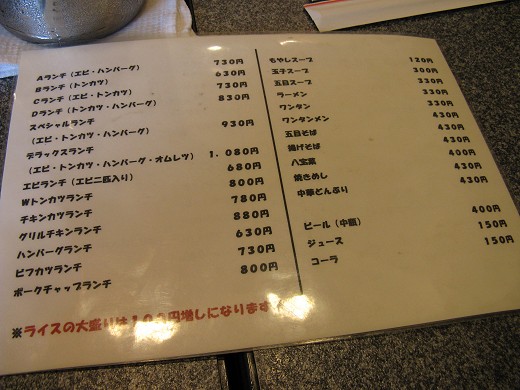 Aランチ（エビ・ハンバーグ） 730円
Bランチ（トンカツ） 630円
Cランチ（エビ・トンカツ） 730円
Dランチ（トンカツ・ハンバーグ） 830円
スペシャルランチ
（エビ・トンカツ・ハンバーグ） 930円
デラックスランチ
（エビ・トンカツ・ハンバーグ・オムレツ） 1，080円
エビランチ（エビ二匹入り） 680円
Wトンカツランチ 800円
チキンカツランチ 780円
グリルチキンランチ 880円
ハンバーグランチ 630円
ビフカツランチ 730円
ポークチャップランチ 800円
もやしスープ 120円
玉子スープ 300円
五目スープ 330円
ラーメン 330円
ワンタン 330円
ワンタンメン 430円
五目そば 430円
揚げそば 430円
八宝菜 400円
焼きめし 430円
中華どんぶり 430円
ビール（中瓶） 400円
ジュース 150円
コーラ 150円
※ライスの大盛りは100円増しになります